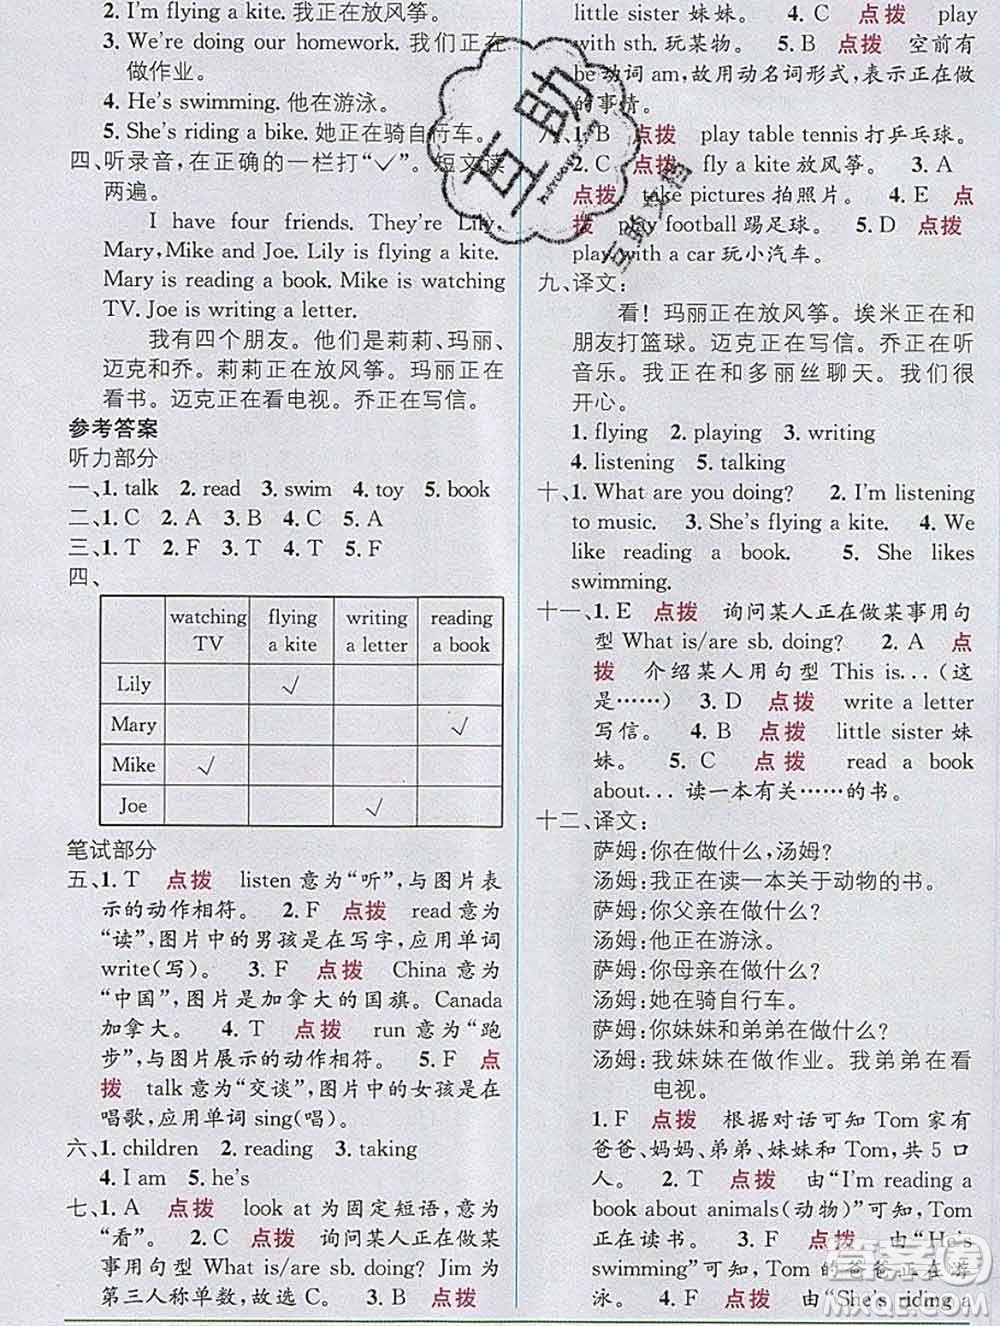 2. I'm flying a kite. 我正在放风筝。
3. We're doing our homework. 我们正在
做作业。
4. He's swimming. 他在游泳。
5. She's riding a bike. 她正在骑自行车。
四、听录音，在正确的一栏打“✓”。短文读
两遍。
I have four friends. They're Lily,
Mary, Mike and Joe. Lily is flying a kite.
Mary is reading a book. Mike is watching
TV. Joe is writing a letter.
我有四个朋友。他们是莉莉、玛丽、
迈克和乔。莉莉正在放风筝。玛丽正在
看书。迈克正在看电视。乔正在写信。
参考答案
听力部分
一、1. talk 2. read 3. swim 4. toy 5. book
二、1. C 2. A 3. B 4. C 5. A
三、1. T 2. F 3. T 4. T 5. F
四、
watching TV flying a kite writing a letter reading a book
Lily ✓
Mary ✓
Mike ✓
Joe ✓
笔试部分
五、1. T 点拨 listen 意为“听”，与图片表
示的动作相符。 2. F 点拨 read 意为
“读”，图片中的男孩是在写字，应用单词
write(写)。 3. F 点拨 China 意为
“中国”，图片是加拿大的国旗。Canada
加拿大。 4. T 点拨 run 意为“跑
步”，与图片展示的动作相符。 5. F 点
拨 talk 意为“交谈”，图片中的女孩是在
唱歌，应用单词 sing(唱)。
六、1. children 2. reading 3. taking
4. I am 5. he's
七、1. A 点拨 look at 为固定短语，意为
“看”。 2. C 点拨 询问某人正在做某
事用句型 What is/are sb. doing? Jim 为
第三人称单数，故选C。 3. B 点拨
little sister 妹妹。 4. C 点拨 play
with sth. 玩某物。 5. B 点拨 空前有
be 动词 am，故用动名词形式，表示正在做
的事情。
八、1. B 点拨 play table tennis 打乒乓球。
2. C 点拨 fly a kite 放风筝。 3. A
点拨 take pictures 拍照片。 4. E 点
拨 play football 踢足球。 5. D 点拨
play with a car 玩小汽车。
九、译文：
看！玛丽正在放风筝。埃米正在和
朋友打篮球。迈克正在写信。乔正在听
音乐。我正在与多丽丝聊天。我们很
开心。
1. flying 2. playing 3. writing
4. listening 5. talking
十、1. What are you doing? 2. I'm listening
to music. 3. She's flying a kite. 4. We
like reading a book. 5. She likes
swimming.
十一、1. E 点拨 询问某人正在做某事用句
型 What is/are sb. doing? 2. A 点
拨 介绍某人用句型 This is...（这
是……） 3. D 点拨 write a letter
写信。 4. B 点拨 little sister 妹
妹。 5. C 点拨 read a book
about... 读一本有关……的书。
十二、译文：
萨姆：你在做什么，汤姆？
汤姆：我正在读一本关于动物的书。
萨姆：你父亲在做什么？
汤姆：他正在游泳。
萨姆：你母亲在做什么？
汤姆：她在骑自行车。
萨姆：你妹妹和弟弟在做什么？
汤姆：我妹妹在做作业。我弟弟在看
电视。
1. F 点拨 根据对话可知 Tom 家有
爸爸、妈妈、弟弟、妹妹和 Tom，共 5 口
人。 2. T 点拨 由“I'm reading a
book about animals(动物)”可知，Tom
正在读书。 3. F 点拨 由“He's
swimming”可知，Tom 的爸爸正在游
泳。 4. F 点拨 由“She's riding a
互助